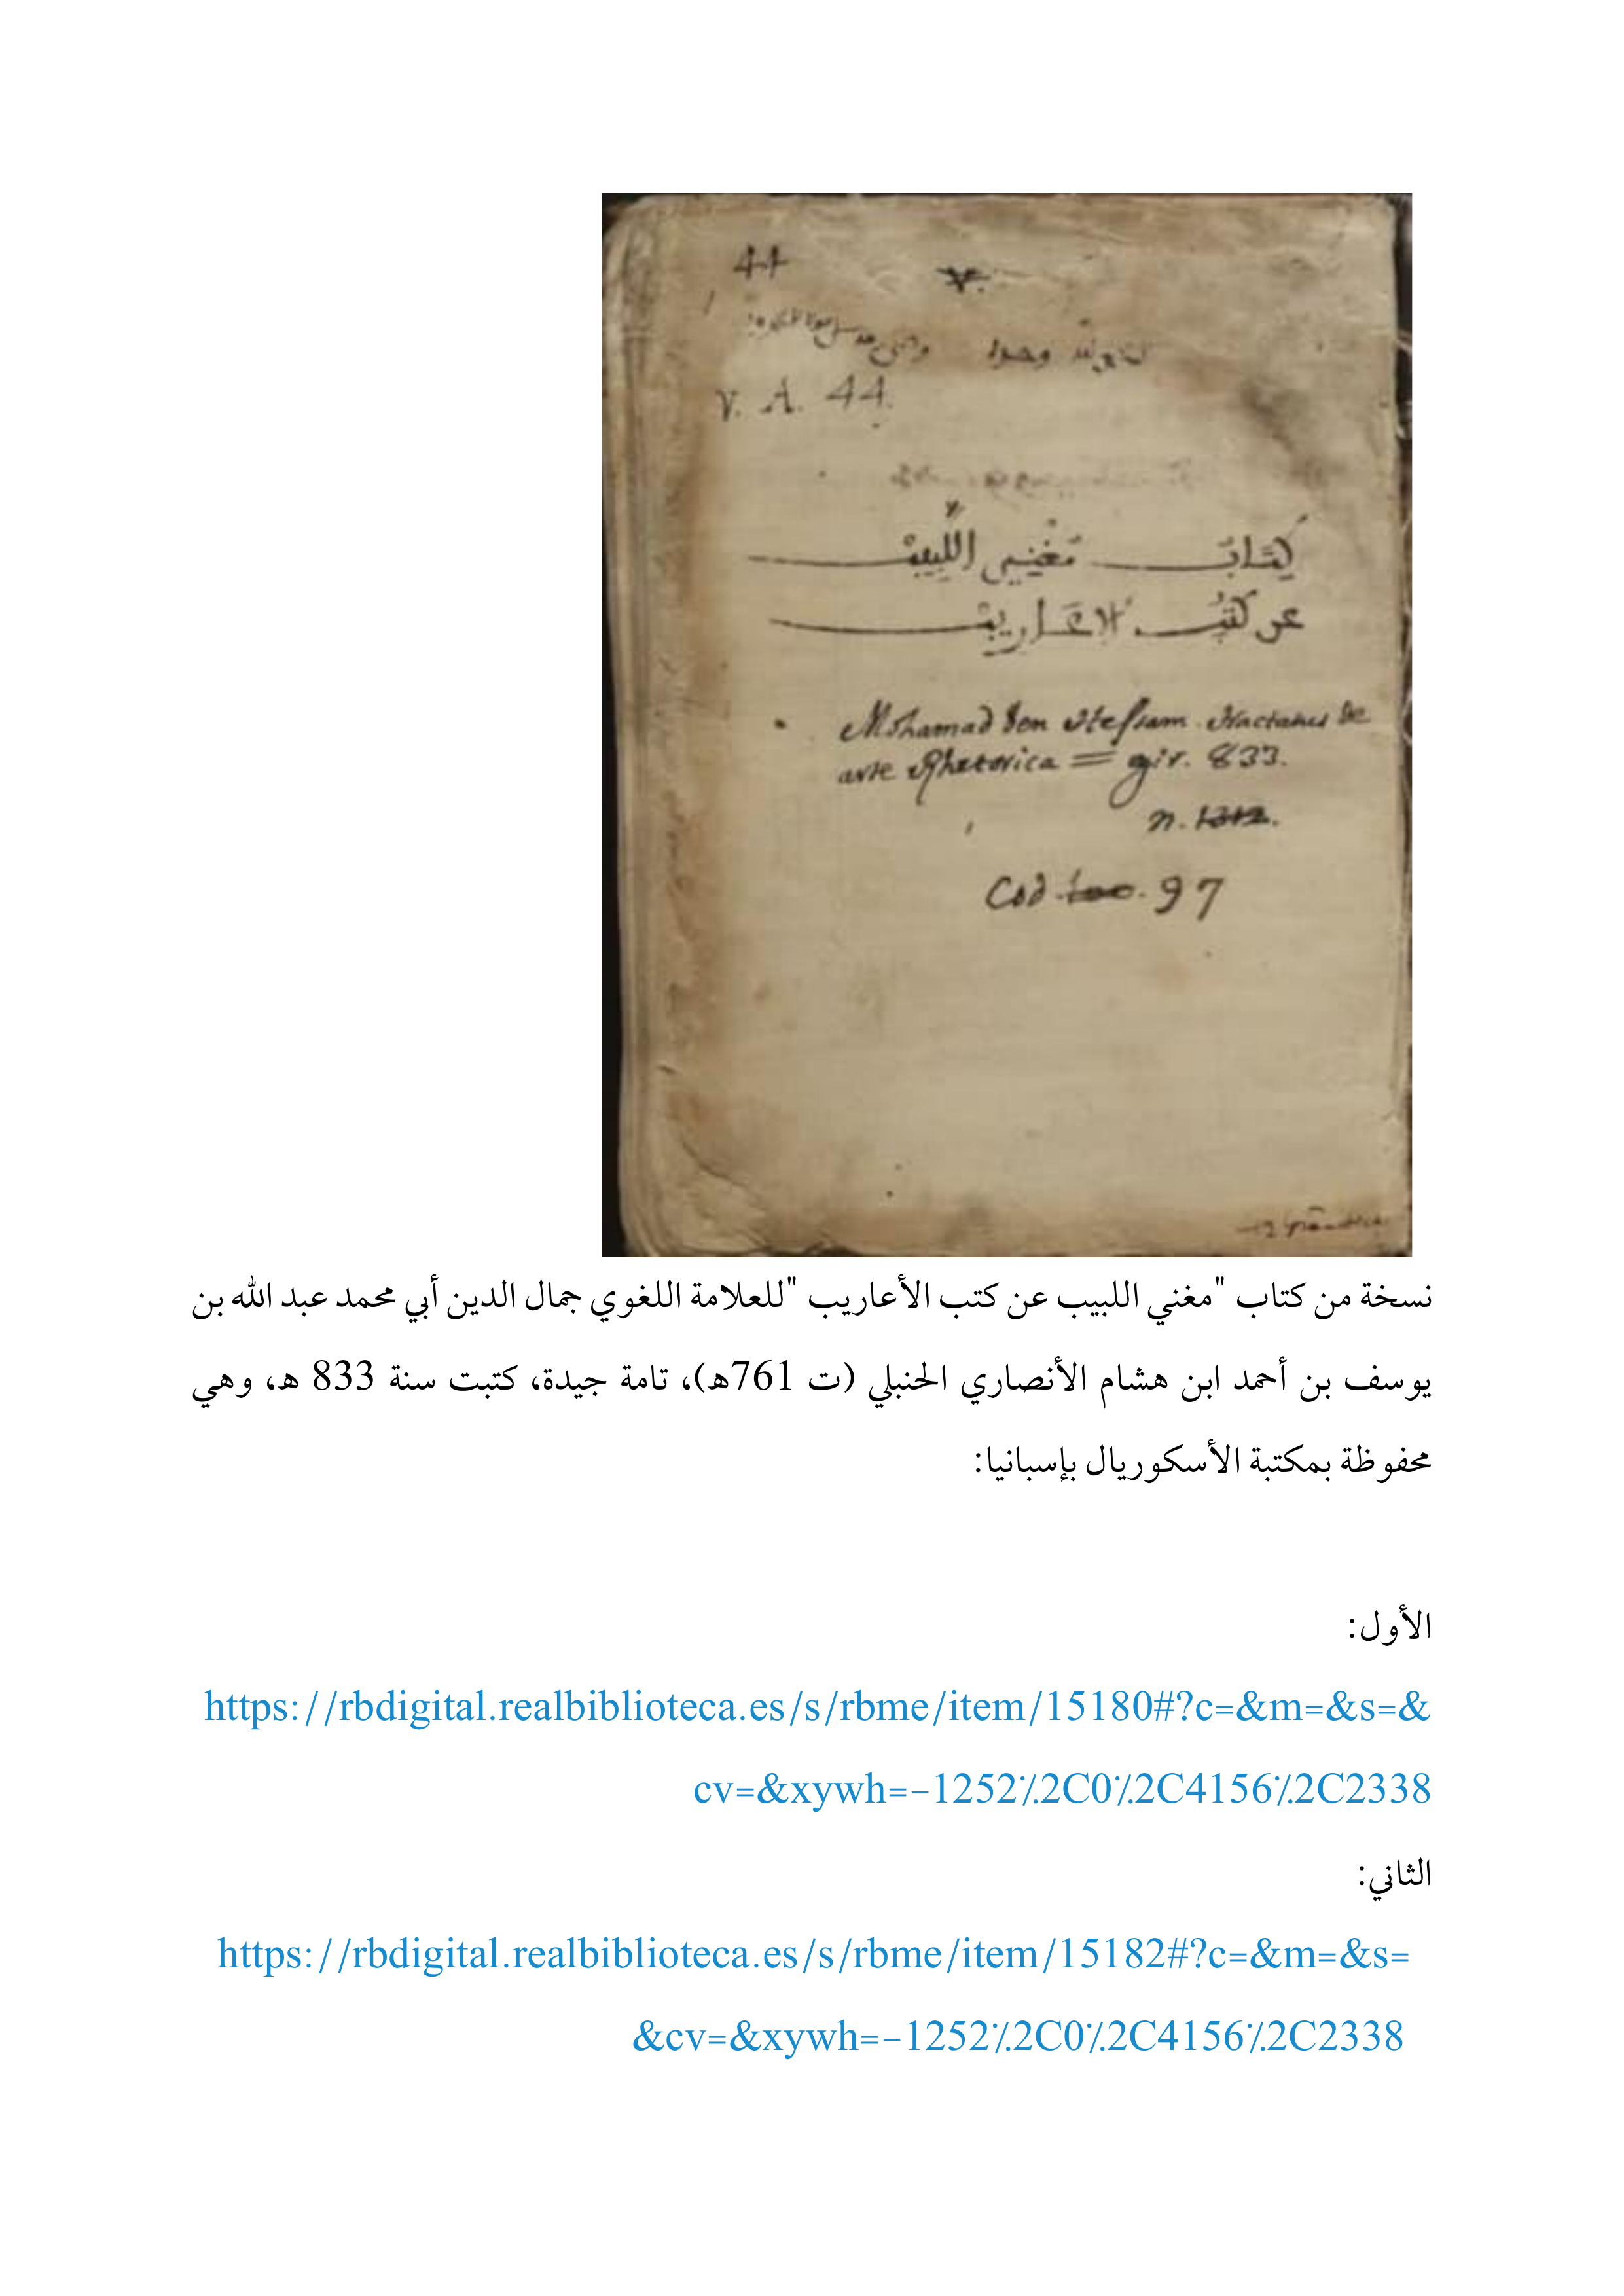 44
V. A. 44.
كتاب مغني اللبيب
عن كتب الاعاريب
Mohamad ben Hessam tractatus de
arte Rhetorica = egir. 833.
n.
Cod 97
نسخة من كتاب "مغني اللبيب عن كتب الأعاريب "للعلامة اللغوي جمال الدين أبي محمد عبد الله بن
يوسف بن أحمد ابن هشام الأنصاري الحنبلي (ت 761هـ)، تامة جيدة، كتبت سنة 833 هـ، وهي
محفوظة بمكتبة الأسكوريال بإسبانيا:
الأول:
https://rbdigital.realbiblioteca.es/s/rbme/item/15180#?c=&m=&s=&
cv=&xywh=-1252%2C0%2C4156%2C2338
الثاني:
https://rbdigital.realbiblioteca.es/s/rbme/item/15182#?c=&m=&s=
&cv=&xywh=-1252%2C0%2C4156%2C2338